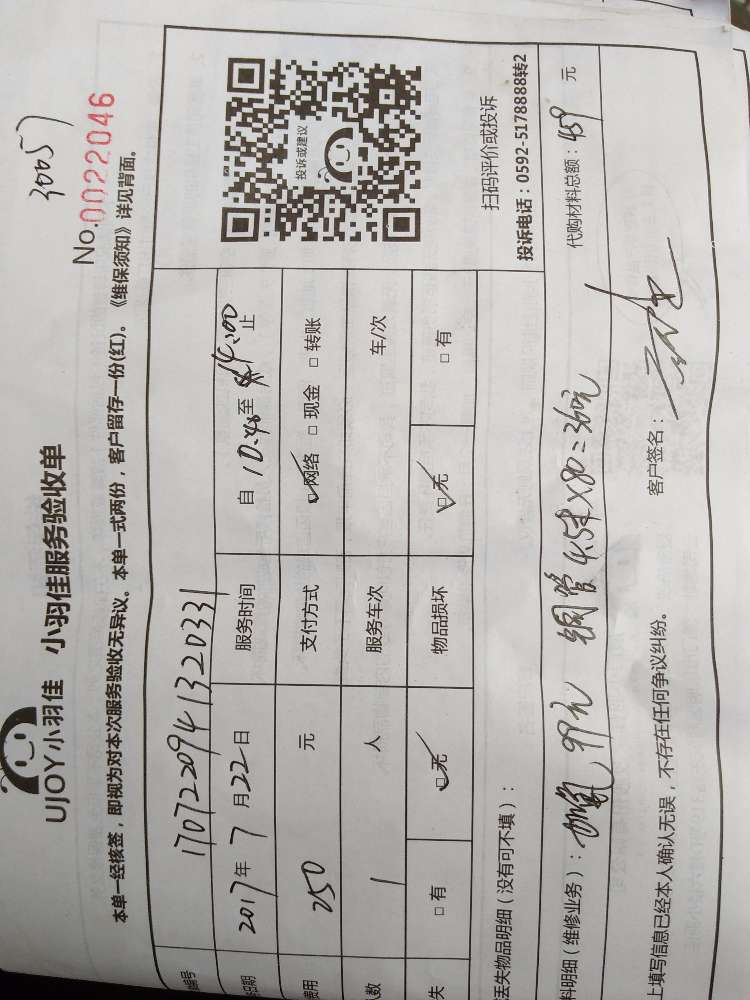 30057
UJOY小羽佳 小羽佳服务验收单
No.0022046
本单一经核签，即视为对本次服务验收无异议。本单一式两份，客户留存一份(红)。《维保须知》详见背面。
编号 1707220941320331
日期 2017年 7 月22日 服务时间 自 10:40至 14:00止
费用 250 元 支付方式 ☑网络 □现金 □转账
人数 1 人 服务车次 车/次
失 □有 ☑无 物品损坏 ☑无 □有
投诉或建议
扫码评价或投诉
投诉电话：0592-5178888转2
丢失物品明细（没有可不填）：
料明细（维修业务）： 加氟 99元 铜管4.5米×80=360元 代购材料总额：459 元
上填写信息已经本人确认无误，不存在任何争议纠纷。 客户签名：